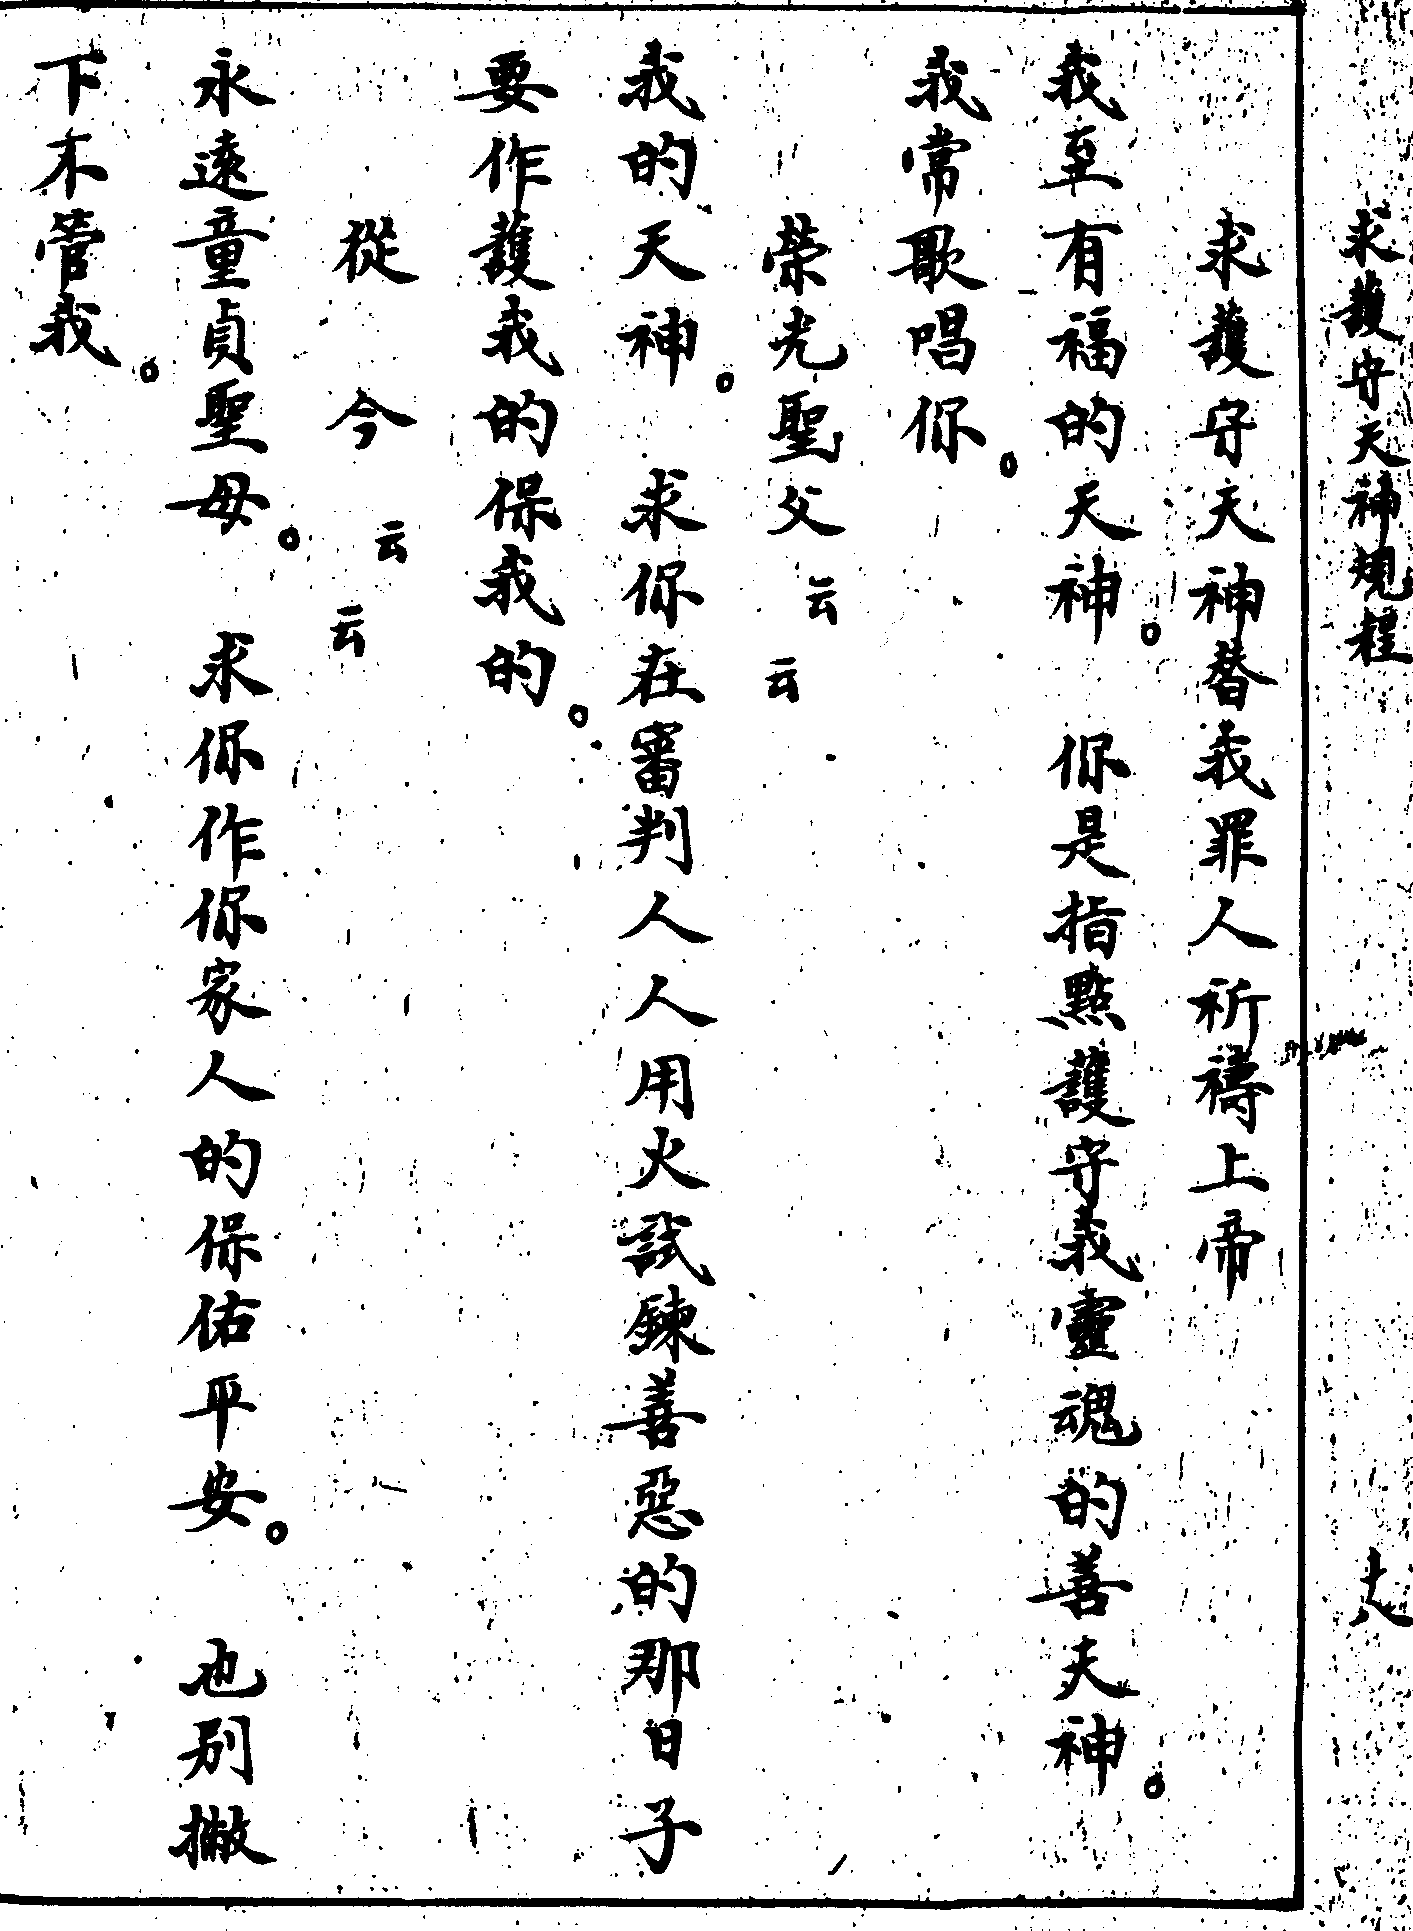 求護守天神規程
求護守天神替我罪人祈禱上帝
我至有福的天神。你是指點護守我靈魂的善天神。
我常歌唱你。
榮光聖父云云
我的天神。求你在審判人人用火試鍊善惡的那日子
要作護我的保我的。
從今云云
永遠童貞聖母。求你作你家人的保佑平安。也別撇
下不管我。